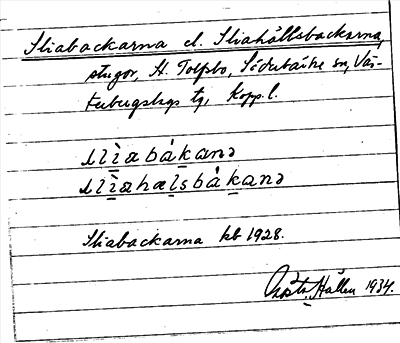 Sliabackarna el. Sliahällsbackarna,
stugor, H. Tolfsbo, Söderbärke sn, Väs-
terbergslags tg, Kopp. l.
slìabákanə
slìahælsbákanə
Sliabackarna kb 1928.
Hållen 1934.